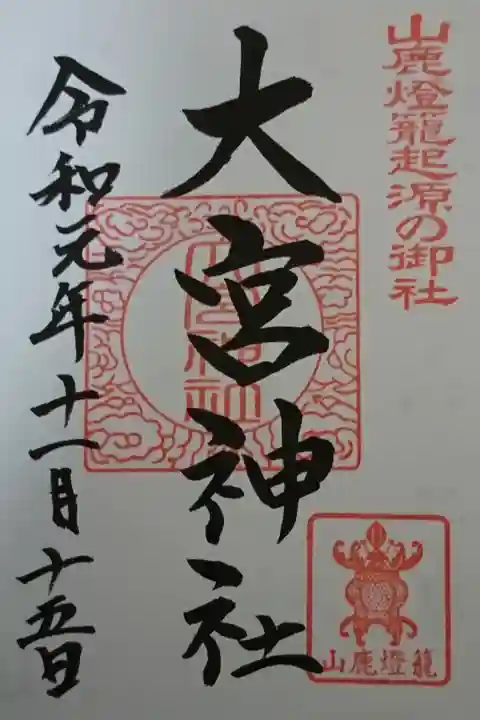 山鹿燈籠起源の御社
大宮神社
令和元年十一月十五日
大宮神社
山鹿燈籠